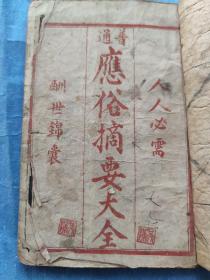 普通
人人必需
應俗摘要大全
酬世錦囊